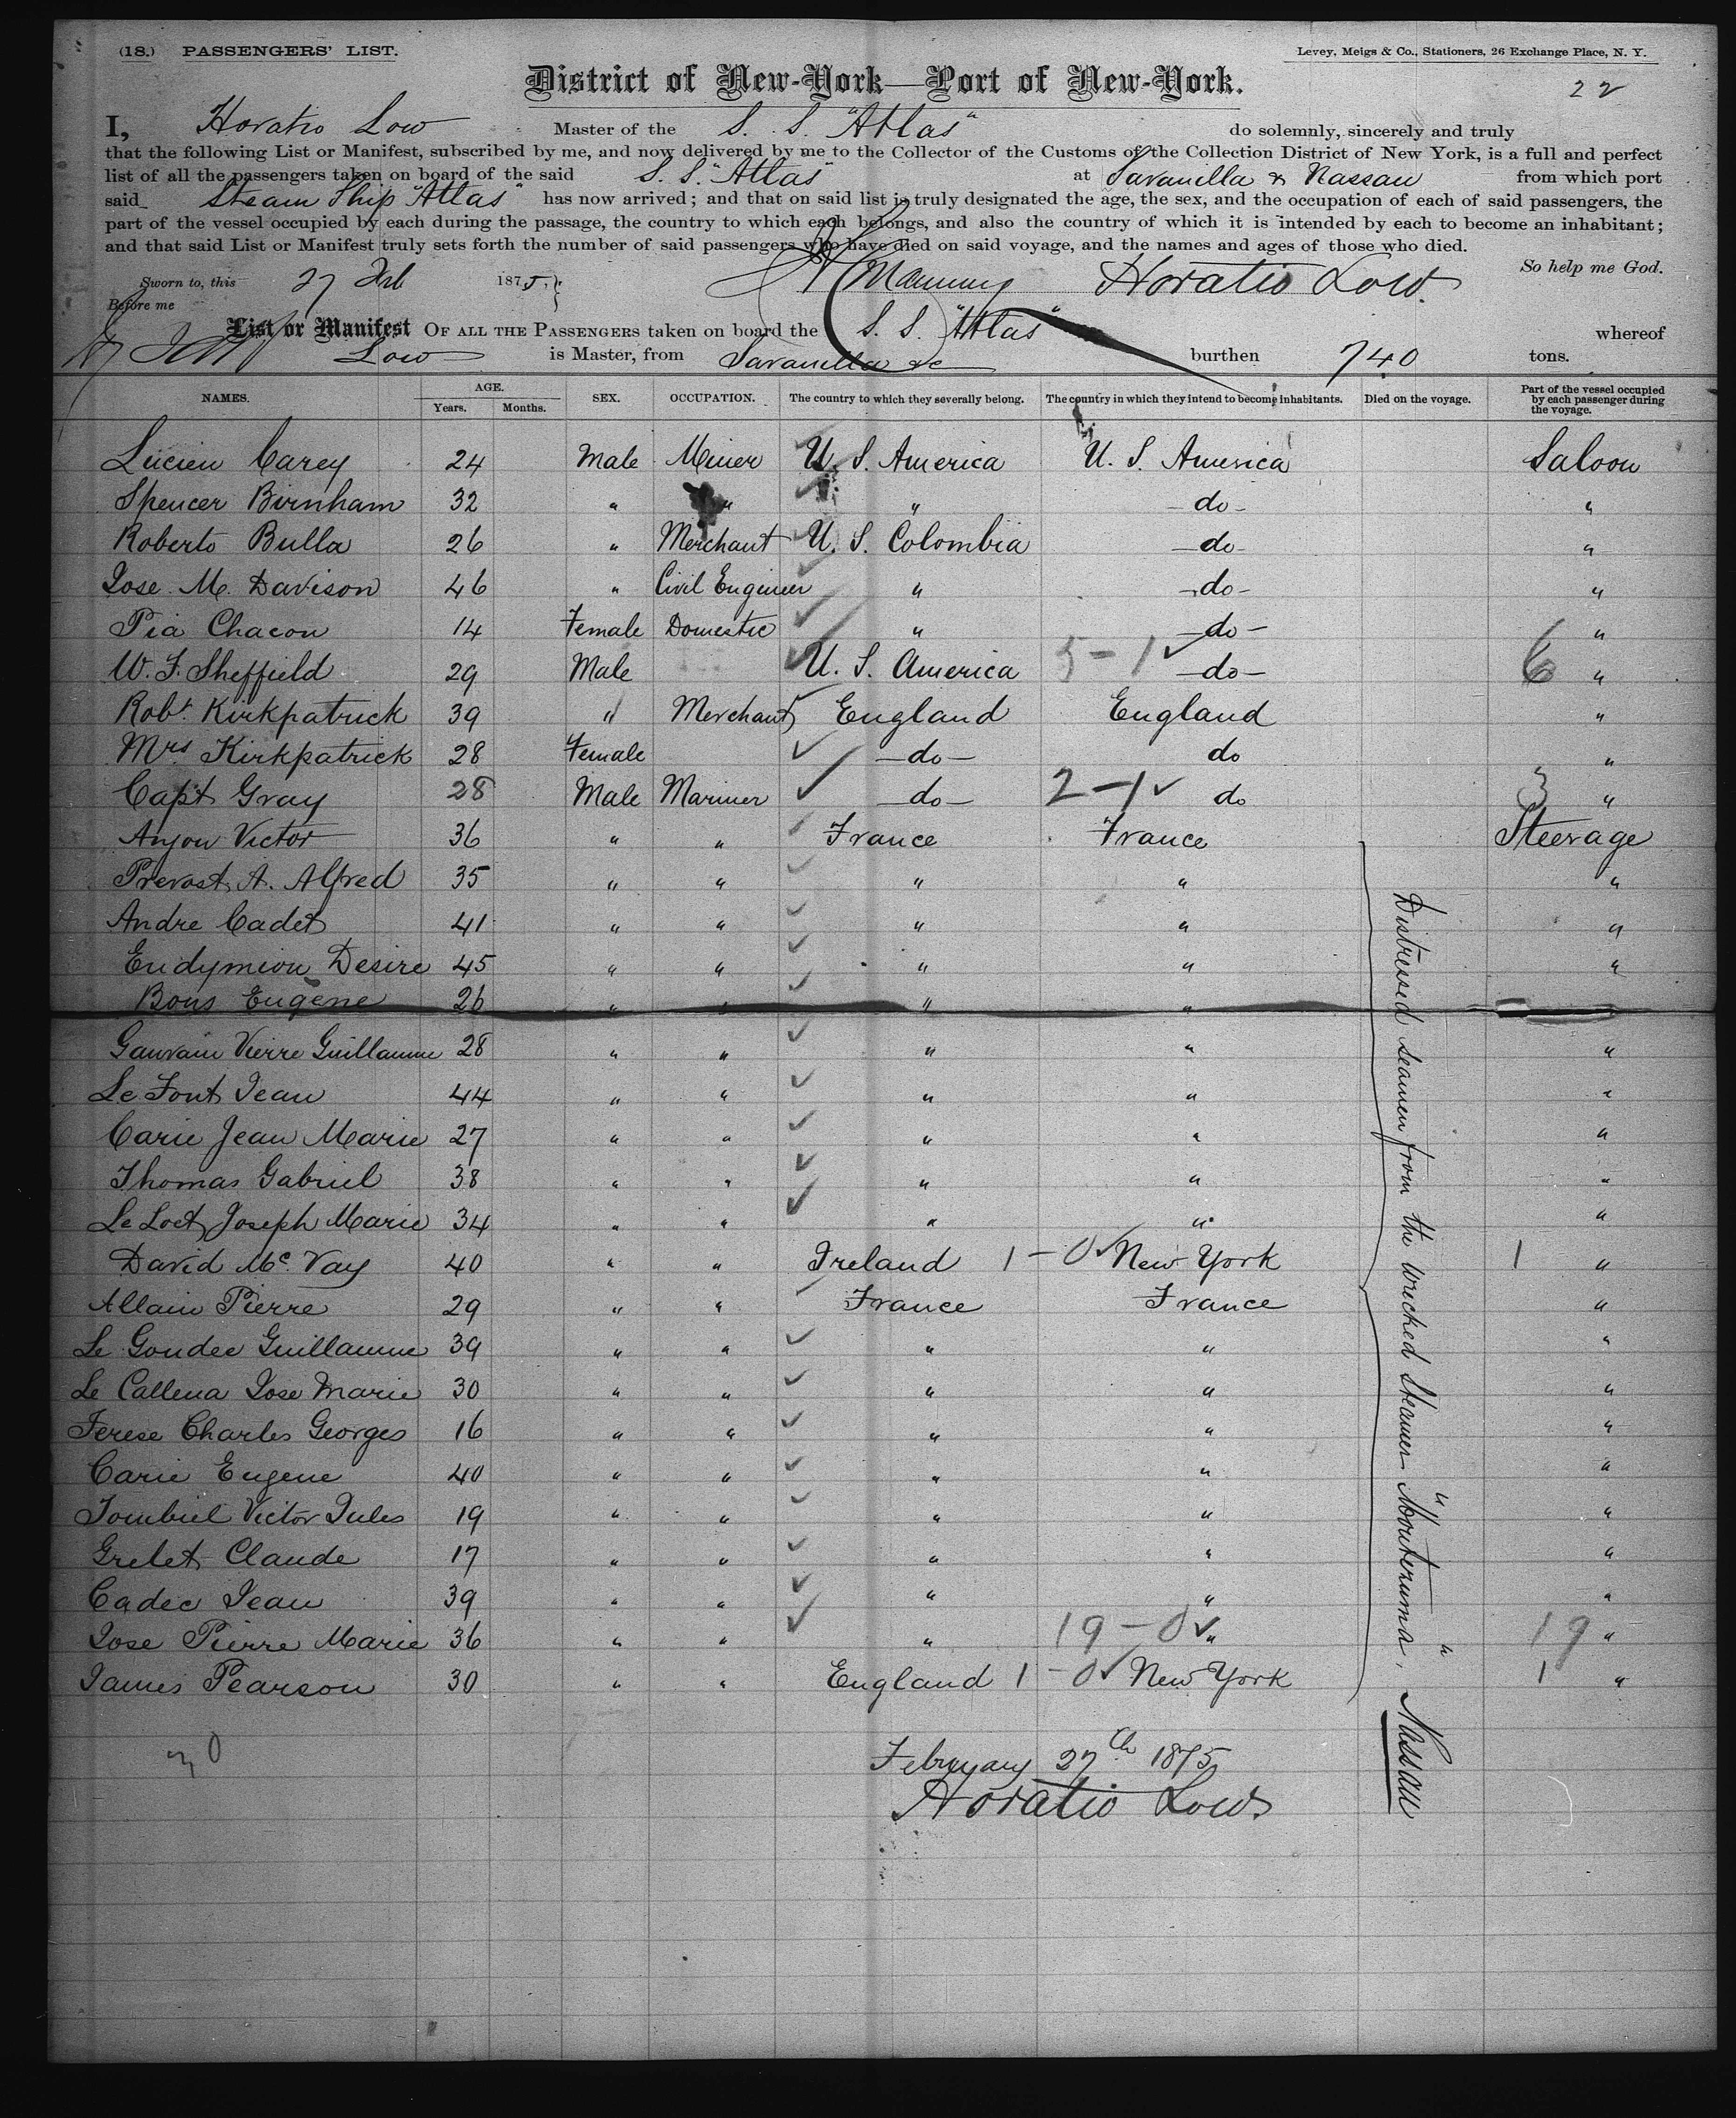 (18.) PASSENGERS' LIST. Levey, Meigs & Co., Stationers, 26 Exchange Place, N. Y.
District of New-York—Port of New-York.
22
I, Horatio Low Master of the S. S. "Atlas" do solemnly, sincerely and truly
that the following List or Manifest, subscribed by me, and now delivered by me to the Collector of the Customs of the Collection District of New York, is a full and perfect
list of all the passengers taken on board of the said S. S. "Atlas" at Savanilla & Nassau from which port
said Steam Ship "Atlas" has now arrived; and that on said list is truly designated the age, the sex, and the occupation of each of said passengers, the
part of the vessel occupied by each during the passage, the country to which each belongs, and also the country of which it is intended by each to become an inhabitant;
and that said List or Manifest truly sets forth the number of said passengers who have died on said voyage, and the names and ages of those who died.
So help me God.
Sworn to, this 27 Feb 1875. Manning Horatio Low.
Before me
List or Manifest OF ALL THE PASSENGERS taken on board the S. S. "Atlas" whereof
Low is Master, from Savanilla &c burthen 740 tons.
NAMES. AGE. Years. Months. SEX. OCCUPATION. The country to which they severally belong. The country in which they intend to become inhabitants. Died on the voyage. Part of the vessel occupied by each passenger during the voyage.
Lucien Carey 24 Male Miner U. S. America U. S. America Saloon
Spencer Birnham 32 " " " do "
Roberto Bulla 26 " Merchant U. S. Colombia do "
Jose M. Davison 46 " Civil Engineer " do "
Pia Chacon 14 Female Domestic " do "
W. F. Sheffield 29 Male U. S. America 5-1 do 6 "
Robt. Kirkpatrick 39 " Merchant England England "
Mrs. Kirkpatrick 28 Female do do "
Capt Gray 28 Male Mariner do 2-1 do 3 "
Anjou Victor 36 " " France France Steerage
Prevost A. Alfred 35 " " " " "
Andre Cadet 41 " " " " "
Endymion Desire 45 " " " " "
Bous Eugene 26 " " " "
Gauvain Vierre Guillaume 28 " " " " "
Le Font Jean 44 " " " " "
Carie Jean Marie 27 " " " " "
Thomas Gabriel 38 " " " " "
Le Loct Joseph Marie 34 " " " " "
David Mc. Vay 40 " " Ireland 1-0 New York 1 "
Allain Pierre 29 " " France France "
Le Goudee Guillaume 39 " " " " "
Le Callena Jose Marie 30 " " " " "
Ferese Charles Georges 16 " " " " "
Carie Eugene 40 " " " " "
Tombiel Victor Jules 19 " " " " "
Grelet Claude 17 " " " " "
Cadec Jean 39 " " " " "
Jose Pierre Marie 36 " " " 19-0 " 19 "
James Pearson 30 " " England 1-0 New York 1 "
Distressed seamen from the wrecked Steamer "Montezuma", Nassau
30
February 27th 1875
Horatio Low